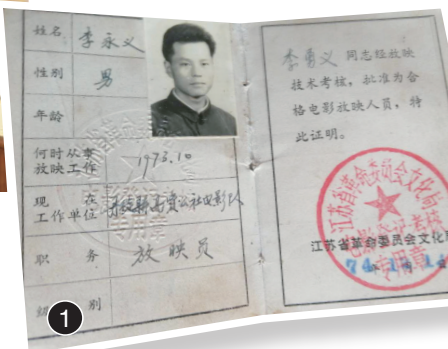 姓名 李永义
性别 男
年龄
何时从事
放映工作 1973.10
现在
工作单位 丹徒县高资公社电影队
职务 放映员
级别
1
李勇义 同志经放映
技术考核，批准为合
格电影放映人员，特
此证明。
江苏省革命委员会文化局
江苏省革命委员会文化局
专用章